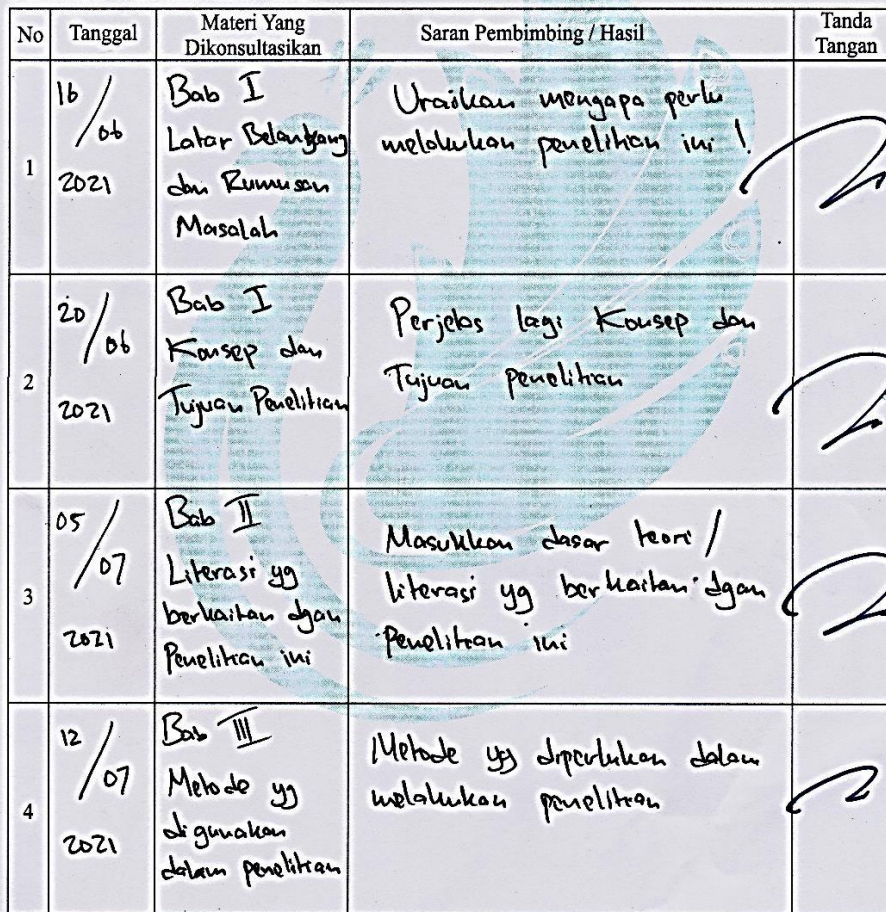 No
Tanggal
Materi Yang
Dikonsultasikan
Saran Pembimbing / Hasil
Tanda
Tangan
1
16
/06
2021
Bab I
Latar Belangkang
dan Rumusan
Masalah
Uraikan mengapa perlu
melakukan penelitian ini !
2
20
/06
2021
Bab I
Konsep dan
Tujuan Penelitian
Perjelas lagi Konsep dan
Tujuan penelitian
3
05
/07
2021
Bab II
Literasi yg
berkaitan dgan
Penelitian ini
Masukkan dasar teori /
literasi yg berkaitan dgan
Penelitian ini
4
12
/07
2021
Bab III
Metode yg
digunakan
dalam penelitian
Metode yg diperlukan dalam
melakukan penelitian